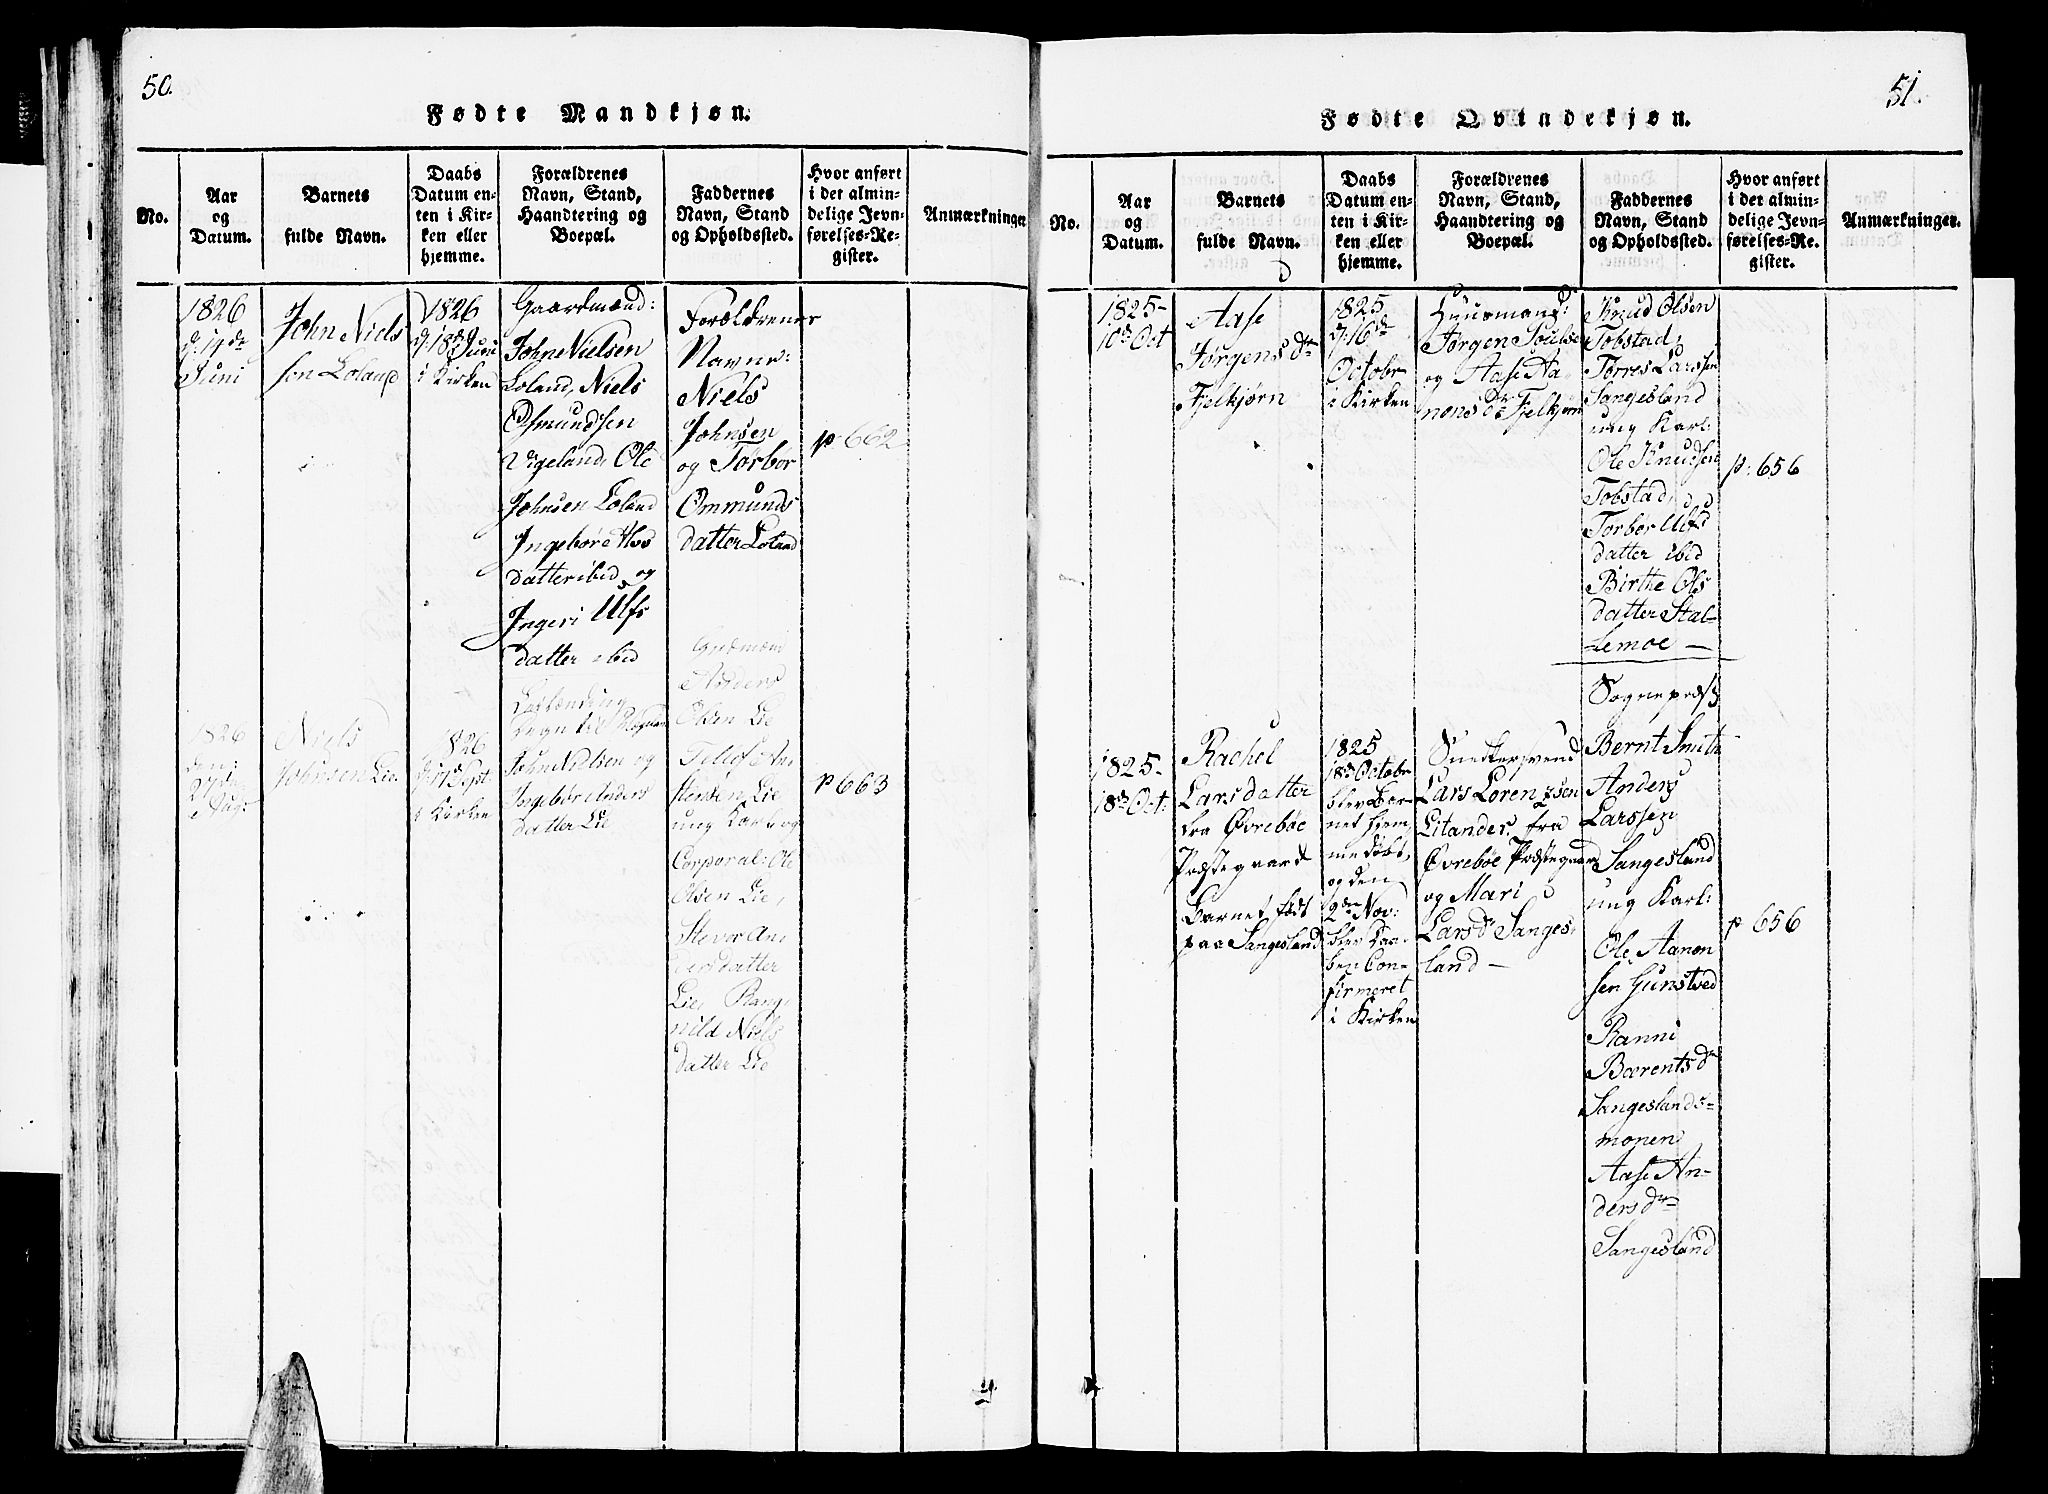 50.
Fødte Mandkjøn.
No.
Aar
og
Datum.
Barnets
fulde Navn.
Daabs
Datum en-
ten i Kir-
ken eller
hjemme.
Forældrenes
Navn, Stand,
Haandtering og
Boepæl.
Faddernes
Navn, Stand
og Opholdssted.
Hvor anført
i det almin-
delige Jevn-
førelses-Re-
gister.
Anmærkninger
1826
Juni
John Niels
sen Loland
1826
d: 18de Juni
i Kirken
Gaardmænd:
John Nielsen
Loland, Niels
Osmundsen
Vigeland, Ole
Johnsen Loland
Ingebør
datter ibid og
Ingeri Ulfs
datter ibid
Forældrenes
Navne:
Niels
Johnsen
og Torbør
Ommunds
datter Loland
p 662
1826
den:
27de
Aug:
Niels
Johnsen Lie.
1826
d: 17de Sept:
i Kirken
John Nielsen og
Ingebør Anders
datter Lie
Anders
Olsen Lie
Tellef An
stensen Lie
ung Karl og
Corporal: Ole
Olsen Lie,
datter
Lie, Rang,
nild Niels
datter Lie
p 663
51.
Fødte Qvindekjøn.
No.
Aar
og
Datum.
Barnets
fulde Navn.
Daabs
Datum en-
ten i Kir-
ken eller
hjemme.
Forældrenes
Navn, Stand,
Haandtering og
Boepæl.
Faddernes
Navn, Stand
og Opholdssted.
Hvor anført
i det almin-
delige Jevn-
førelses-Re-
gister.
Anmærkninger.
1825-
10de Oct
Aase
Jørgens dr
Fjelkjørn
1825
d: 16de
Octobr
i Kirken
Huusmand:
Jørgen
og Aase Aa
nons Dr Fjelkjørn
Knud Olsen
Tobstad,
Torres Larssen
Sangesland
ung Karl:
Ole Knudsen
Tobstad,
Torbor Ulfs
datter ibid
Birthe Ols
datter Stal-
lemoe —
p: 656
1825-
18de Oct:
Rachel
Larsdatter
fra Øvrebøe
Præstegaard
Barnet født
paa Sangesland
1825
18de Octobr
blev Bar-
net hjem-
me døbt,
og den
2den Nov:
blev Daa-
ben Con-
firmeret
i Kirken
Snedkersvend
Lars Lorenzsen
Litander, fra
Øvrebøe Præstegaard
og Mari
Larsdr Sanges-
land —
Sognepræst
Bernt Smith
Anders
Larssen
Sangesland
ung Karl:
Ole Aanon
sen Gunstved
Ranni
Bærents dr
Sangeslands-
monen
Aase An-
ders dr
Sangesland
p 656